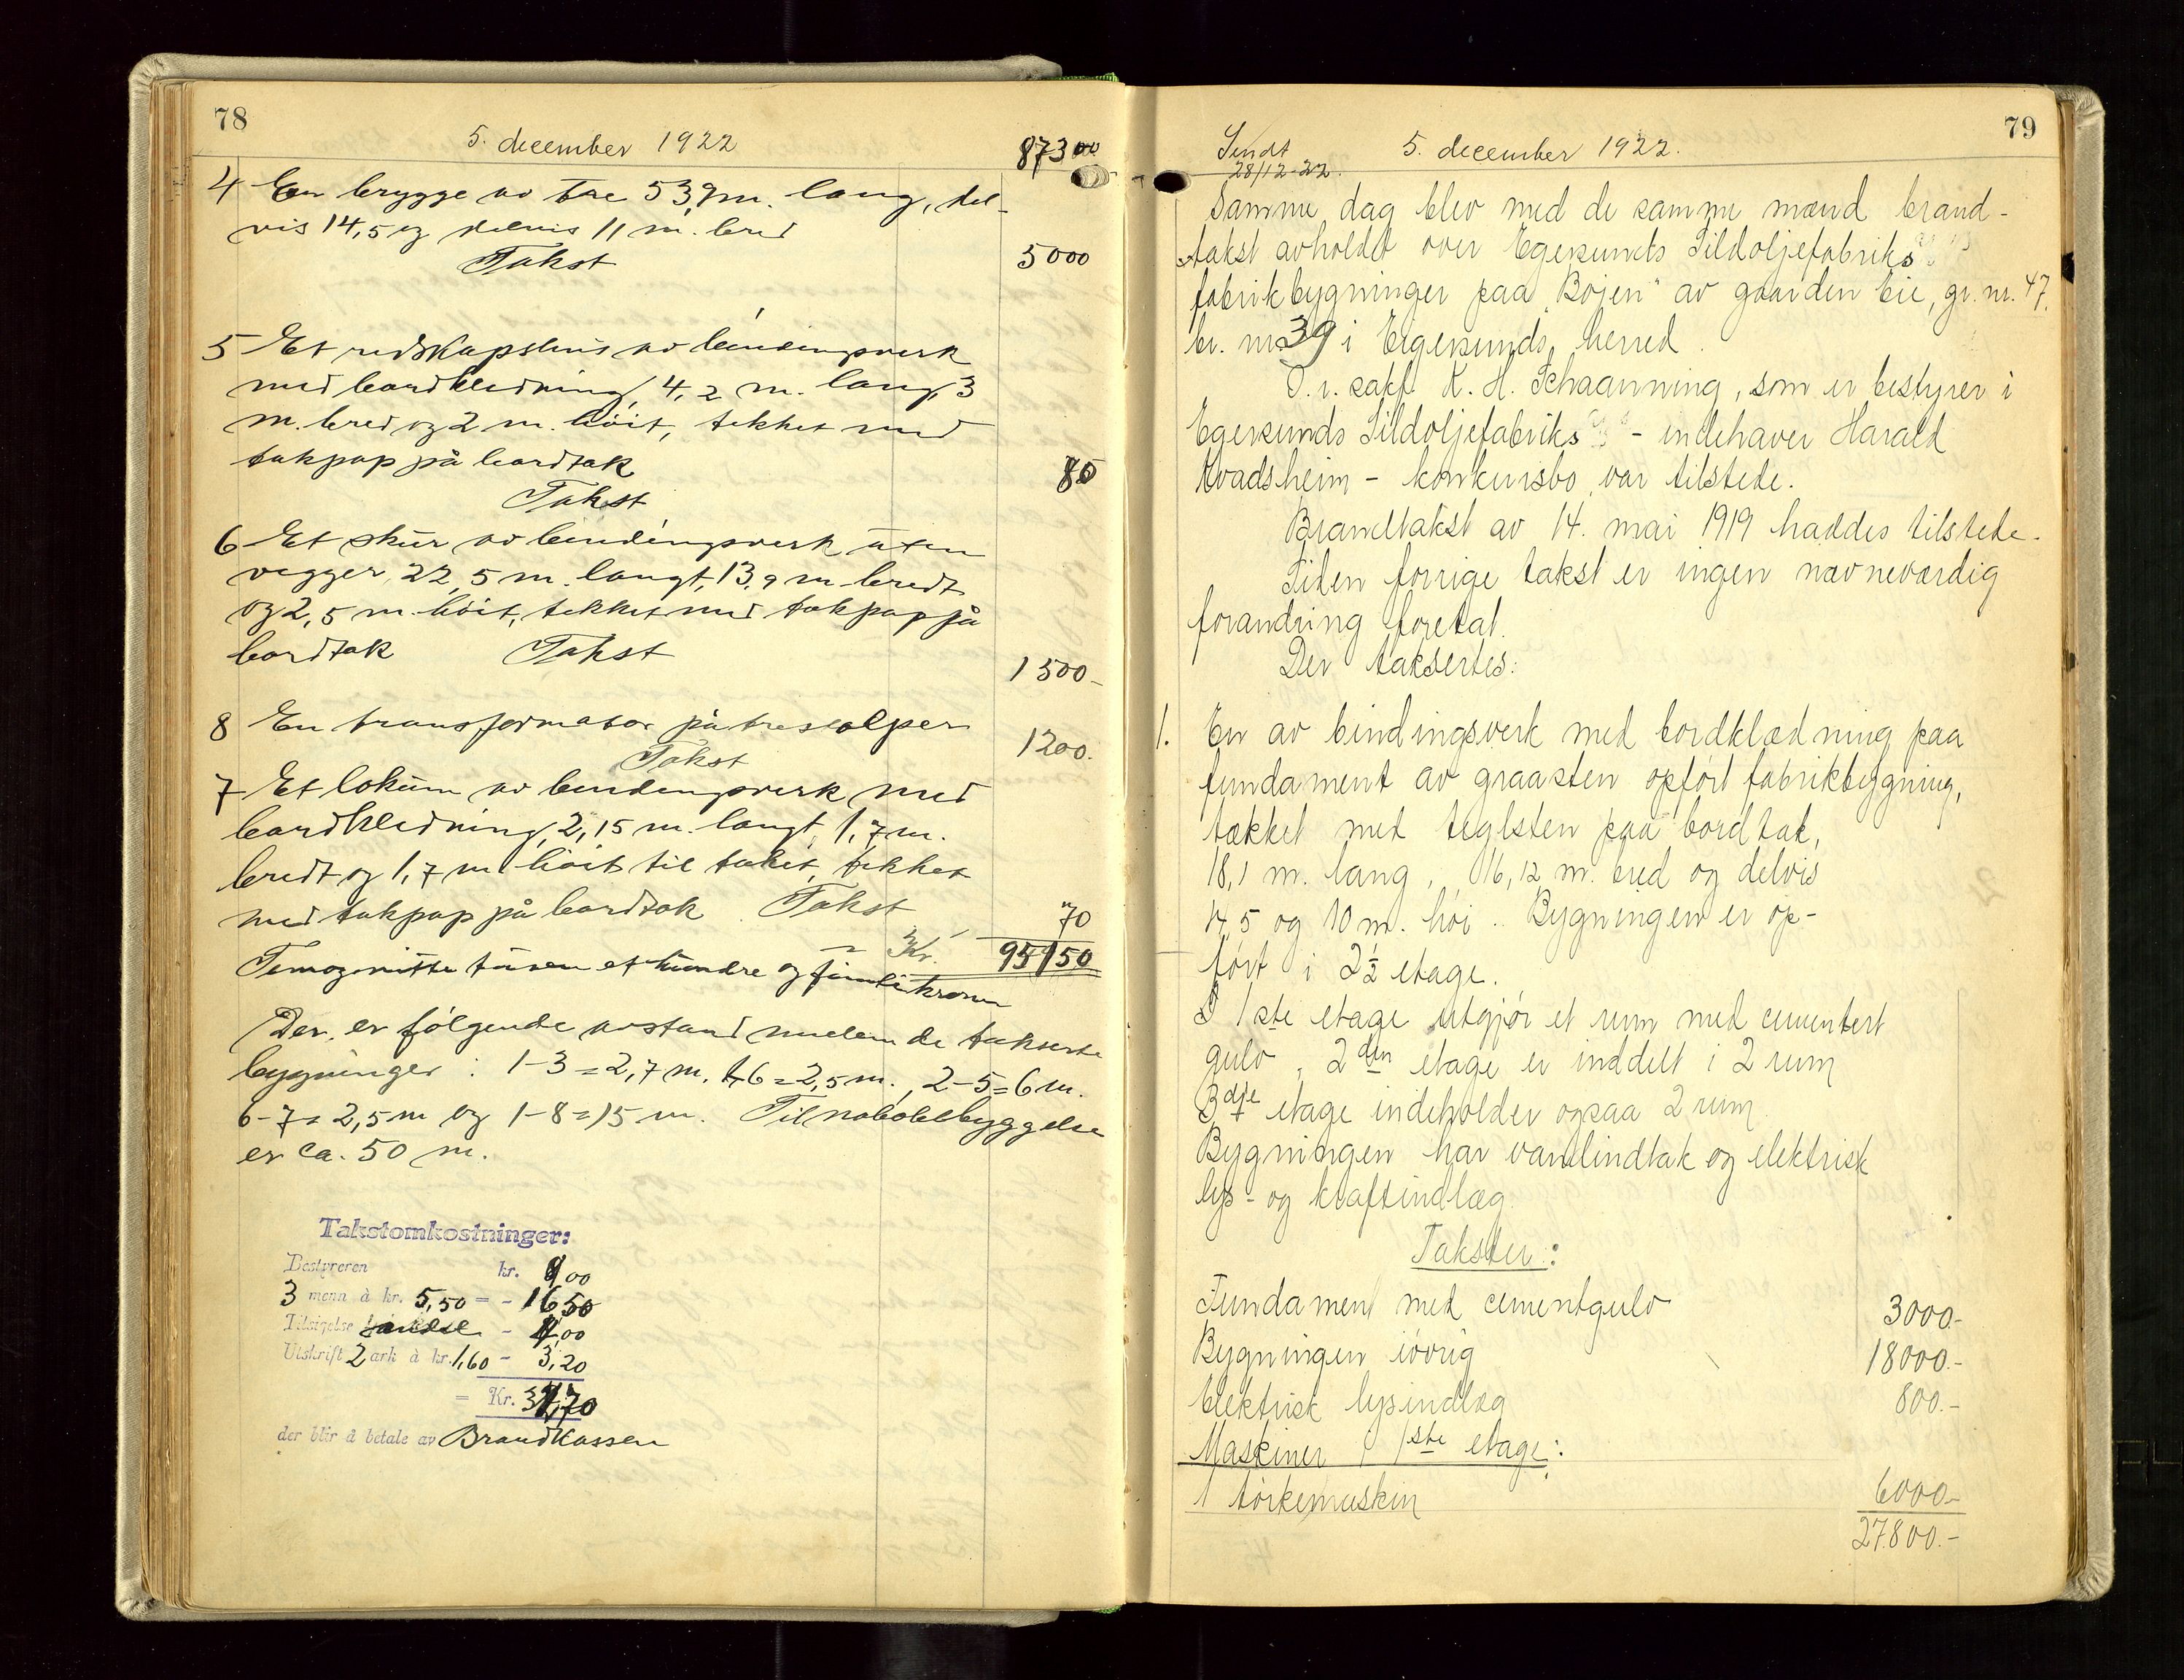 78
5. december 1922
87300
4 En brygge av tre 53,9 m. lang, del-
vis 14,5 og delvis 11 m. bred
Takst 5000
5 Et redskapshus av bindingsverk
med bordkledning, 4,2 m. lang, 3
m. bred og 2 m. höit, tekket med
takpap på bordtak 80
Takst
6 Et skur av bindingsverk uten
vegger, 22,5 m. langt, 13,9 m bredt
og 2,5 m. höit, tekket med takpap på
bordtak Takst 1500-
8 En transformator på trestolper
Takst 1200.
7 Et lokum av bindingsverk med
bordkledning, 2,15 m. langt, 1,7 m.
bredt og 1,7 m höit til taket, tekket
med takpap på bordtak Takst 70
Kr. 95150
Femognitti tusen et hundre og femti kroner
Der er følgende avstand mellem de takserte
bygninger: 1-3=2,7 m. 1-6=2,5 m., 2-5=6 m.
6-7=2,5 m og 1-8=15 m. Til nabobebyggelse
er ca. 50 m.
Takstomkostninger:
Bestyreren kr. 8,00
3 menn à kr. 5,50 = - 16,50
Tilsigelse - 4,00
Utskrift 2 ark à kr. 1,60 - 3,20
= Kr. 31,70
der blir å betale av Brandkassen
79
Sendt
28/12-22.
5. december 1922.
Samme dag blev med de samme mænd brand-
takst avholdt over Egersunds Sildoljefabriks
fabrikbygninger paa "Bøjen" av gaarden Eie, gr. nr. 47,
br. nr. 39 i Egersunds herred.
O. r. sakf. K. H. Schaanning, som er bestyrer i
Egersunds Sildoljefabriks - indehaver Harald
Kvadsheim - konkursbo, var tilstede.
Brandtakst av 14. mai 1919 haddes tilstede.
Siden forrige takst er ingen nævneværdig
forandring foretat.
Der taksertes:
1. En av bindingsverk med bordklædning paa
fundament av graasten opført fabrikbygning,
tækket med teglsten paa bordtak,
18,1 m. lang, 16,12 m. bred og delvis
4,5 og 10 m. høi. Bygningen er op-
ført i 2½ etage.
I 1ste etage utgjør et rum med cementert
gulv, 2den etage er inddelt i 2 rum
3dje etage indeholder ogsaa 2 rum.
Bygningen har vandindtak og elektrisk
lys- og kraftindlæg.
Takster:
Fundament med cementgulv 3000.-
Bygningen iøvrig 18000.-
Elektrisk lysindlæg 800.-
Maskiner i 1ste etage:
1 tørkemaskin 6000.-
27.800.-